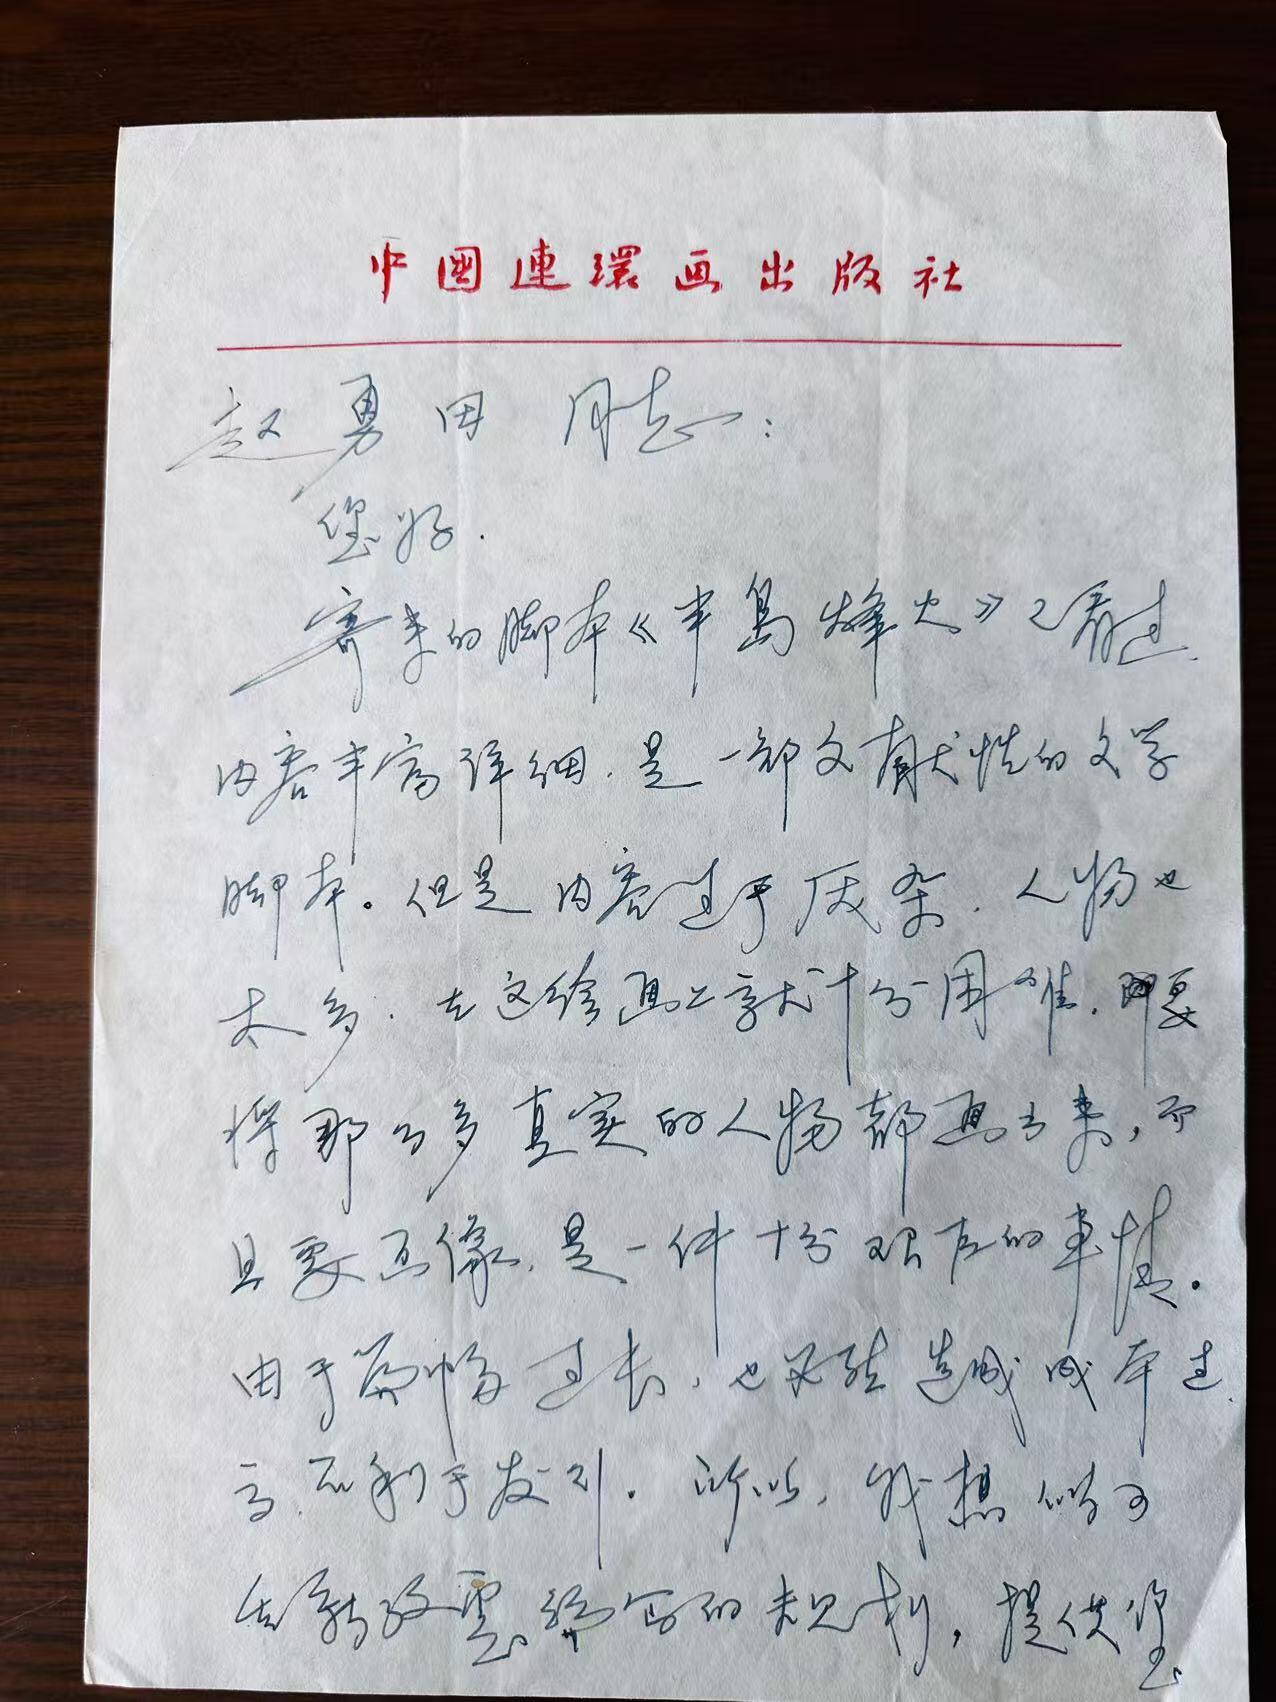 中國連環画出版社
赵勇田 同志：
您好.
寄来的脚本《半岛烽火》已看过.
内容丰富详细.是一部文献性的文学
脚本。但是内容过于庞杂.人物也
太多.在这绘画上就十分困难.要
将那么多真实的人物都画出来，而
且要画像.是一件十分艰巨的事情。
由于篇幅过长，也必然造成成本过
高.不利于发行。所以，我想似可
编写的规划，提供您